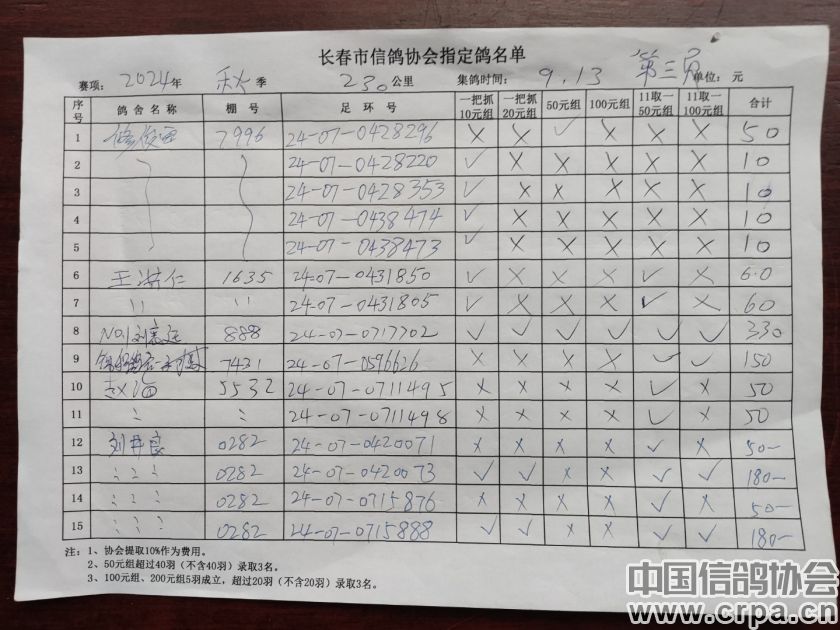 长春市信鸽协会指定鸽名单
赛项: 2024年 秋季 230公里 集鸽时间: 9.13 第三页 单位: 元
序号 鸽舍名称 棚号 足环号 一把抓10元组 一把抓20元组 50元组 100元组 11取一50元组 11取一100元组 合计
1 7996 24-07-0428296 X X ✓ X X X 50
2 24-07-0428220 ✓ X X X X X 10
3 24-07-0428353 ✓ X X X X X 10
4 24-07-0438474 ✓ X X X X X 10
5 24-07-0438473 ✓ X X X X X 10
6 王洪仁 1635 24-07-0431850 ✓ X X X ✓ X 60
7 〃 〃 24-07-0431805 ✓ X X X ✓ X 60
8 No.1刘 888 24-07-0717702 ✓ ✓ ✓ ✓ ✓ ✓ 330
9 7431 24-07-0596626 X X X X ✓ ✓ 150
10 赵海 5532 24-07-0711495 X X X X ✓ X 50
11 〃 〃 24-07-0711498 X X X X ✓ X 50
12 刘井良 0282 24-07-0420071 X X X X ✓ X 50-
13 〃 〃 〃 0282 24-07-0420073 ✓ ✓ X X ✓ ✓ 180-
14 〃 〃 〃 0282 24-07-0715876 X X X X ✓ X 50-
15 〃 〃 〃 0282 24-07-0715888 ✓ ✓ X X ✓ ✓ 180-
注: 1、协会提取10%作为费用。
2、50元组超过40羽(不含40羽)录取3名。
3、100元组、200元组5羽成立,超过20羽(不含20羽)录取3名。
中国信鸽协会
www.crpa.cn